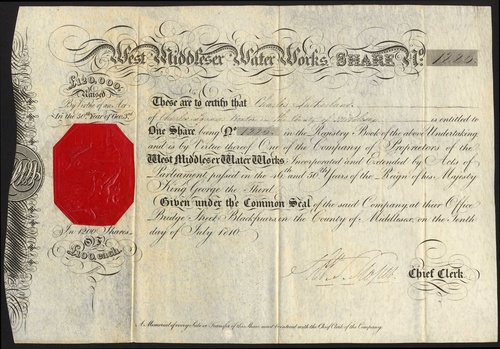 West Middlesex Water Works SHARE No.
£120,000.
Raised
By Virtue of an Act
In the 50th Year of Geo. 3rd
In 1200 Shares
OF
£100 each.
These are to certify that Charles
of Charles Square Hoxton in the County of Middlesex is entitled to
One Share being No. in the Registry Book of the above Undertaking
and is by Virtue thereof One of the Company of Proprietors of the
West Middlesex Water Works Incorporated and Extended by Acts of
Parliament passed in the 46th and 50th Years of the Reign of his Majesty
King George the Third.
Given under the Common Seal of the said Company at their Office
Bridge Street Blackfriars in the County of Middlesex, on the Tenth
day of July 1810.
Chief Clerk.
A Memorial of every Sale or Transfer of this Share must be entered with the Chief Clerk of the Company.